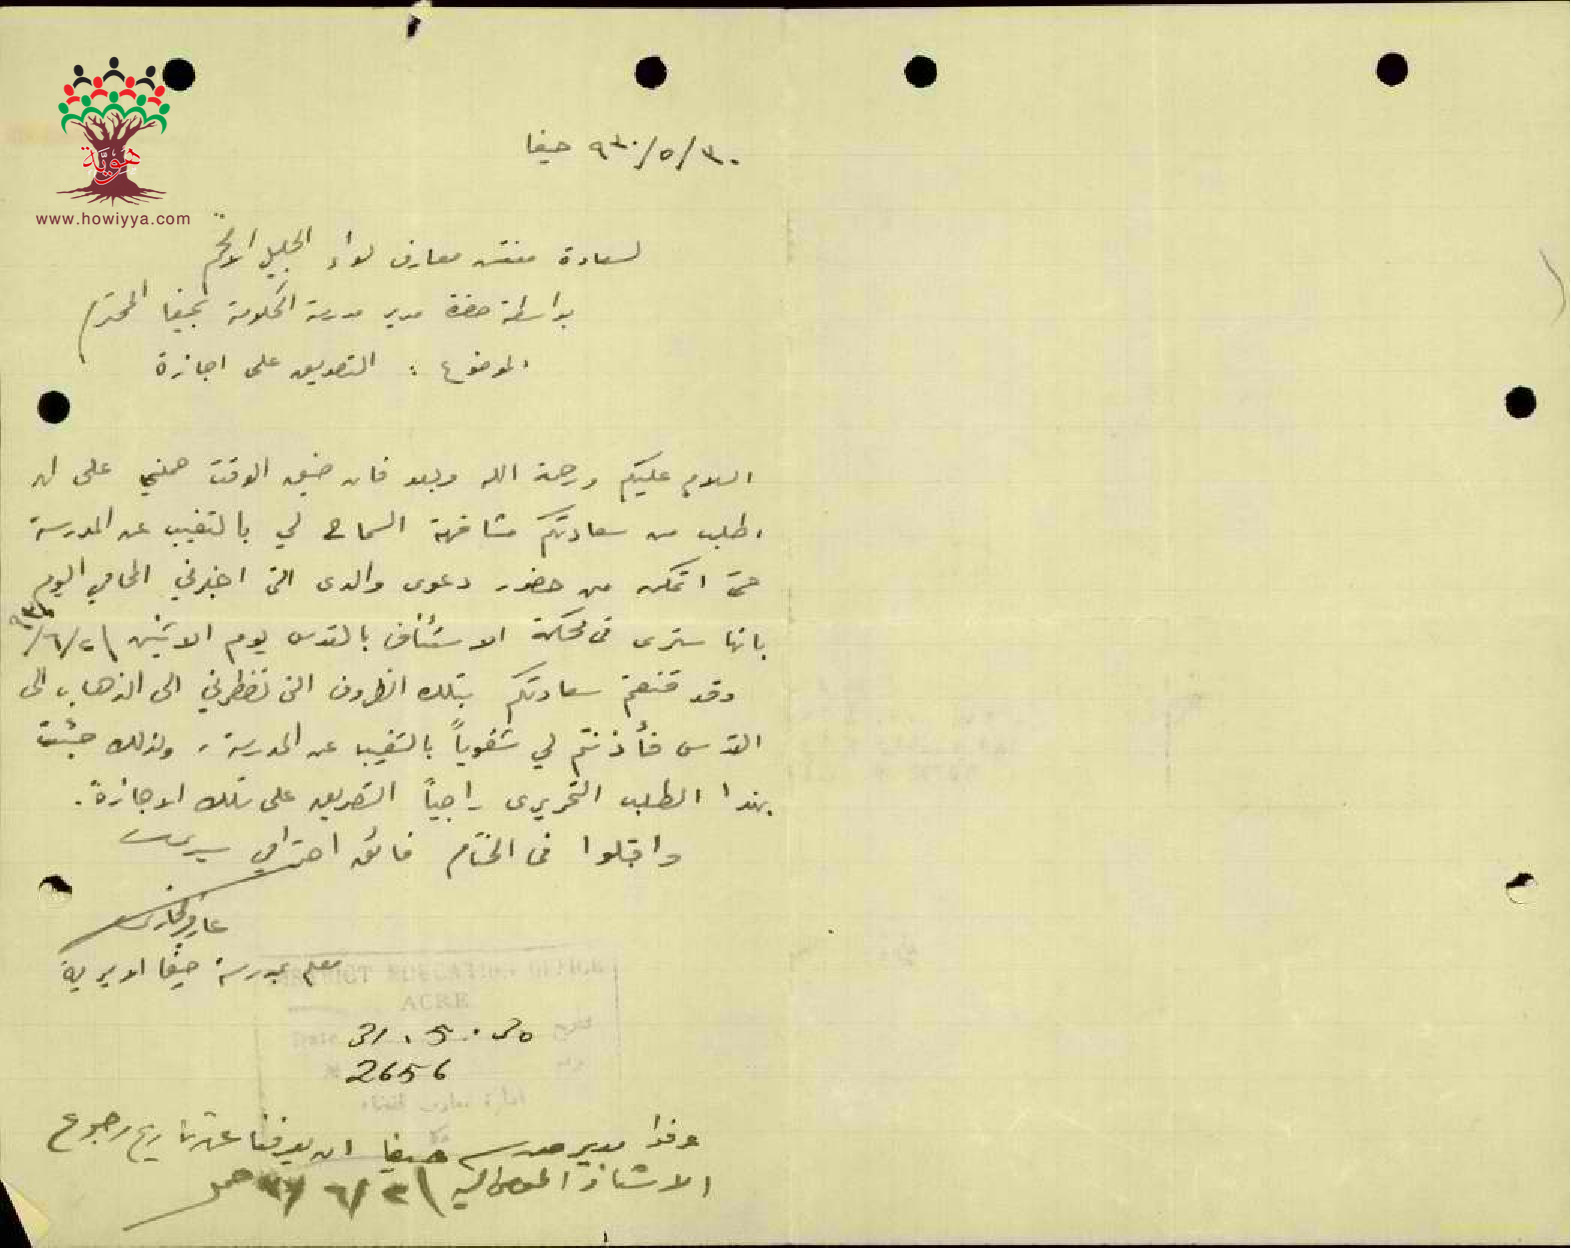 هوية
www.howiyya.com
٣٠/٥/٩٣٠ حيفا
لسعادة مفتش معارف لواء الجليل الافخم
بواسطة حضرة مدير مدرسة الحكومة بحيفا المحترم
الموضوع : التصديق على اجازة
السلام عليكم ورحمة الله وبعد فان ضيق الوقت حملني على ان
اطلب من سعادتكم مشافهة السماح لي بالتغيب عن المدرسة
حتى اتمكن من حضور دعوى والدى التى اخبرني المحامي اليوم
بانها سترى فى محكمة الاستئناف بالقدس يوم الاثنين ٢/٦/٩٣٠
وقد قنعتم سعادتكم بتلك الظروف التى تضطرني الى الذهاب الى
القدس فأذنتم لي شفوياً بالتغيب عن المدرسة، ولذلك جئت
بهذا الطلب التحريرى راجياً التصديق على تلك الاجازة.
واقبلوا فى الختام فائق احترامي سيدى
معلم بمدرسة حيفا الاميرية
DISTRICT EDUCATION OFFICE
ACRE
Date 31.5.30
2656
ادارة معارف قضاء
عكا
مدير مدرسة حيفا ان يعرفنا عن تاريخ رجوع
الاستاذ ٢/٦/